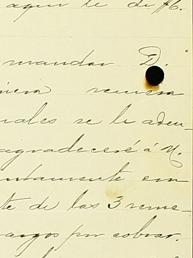 aqui le di $6.
mandar D.
remesa
uales se le adeu
agradeceré á U.
ntamente con
te de las 3 reme
argos por cobrar.